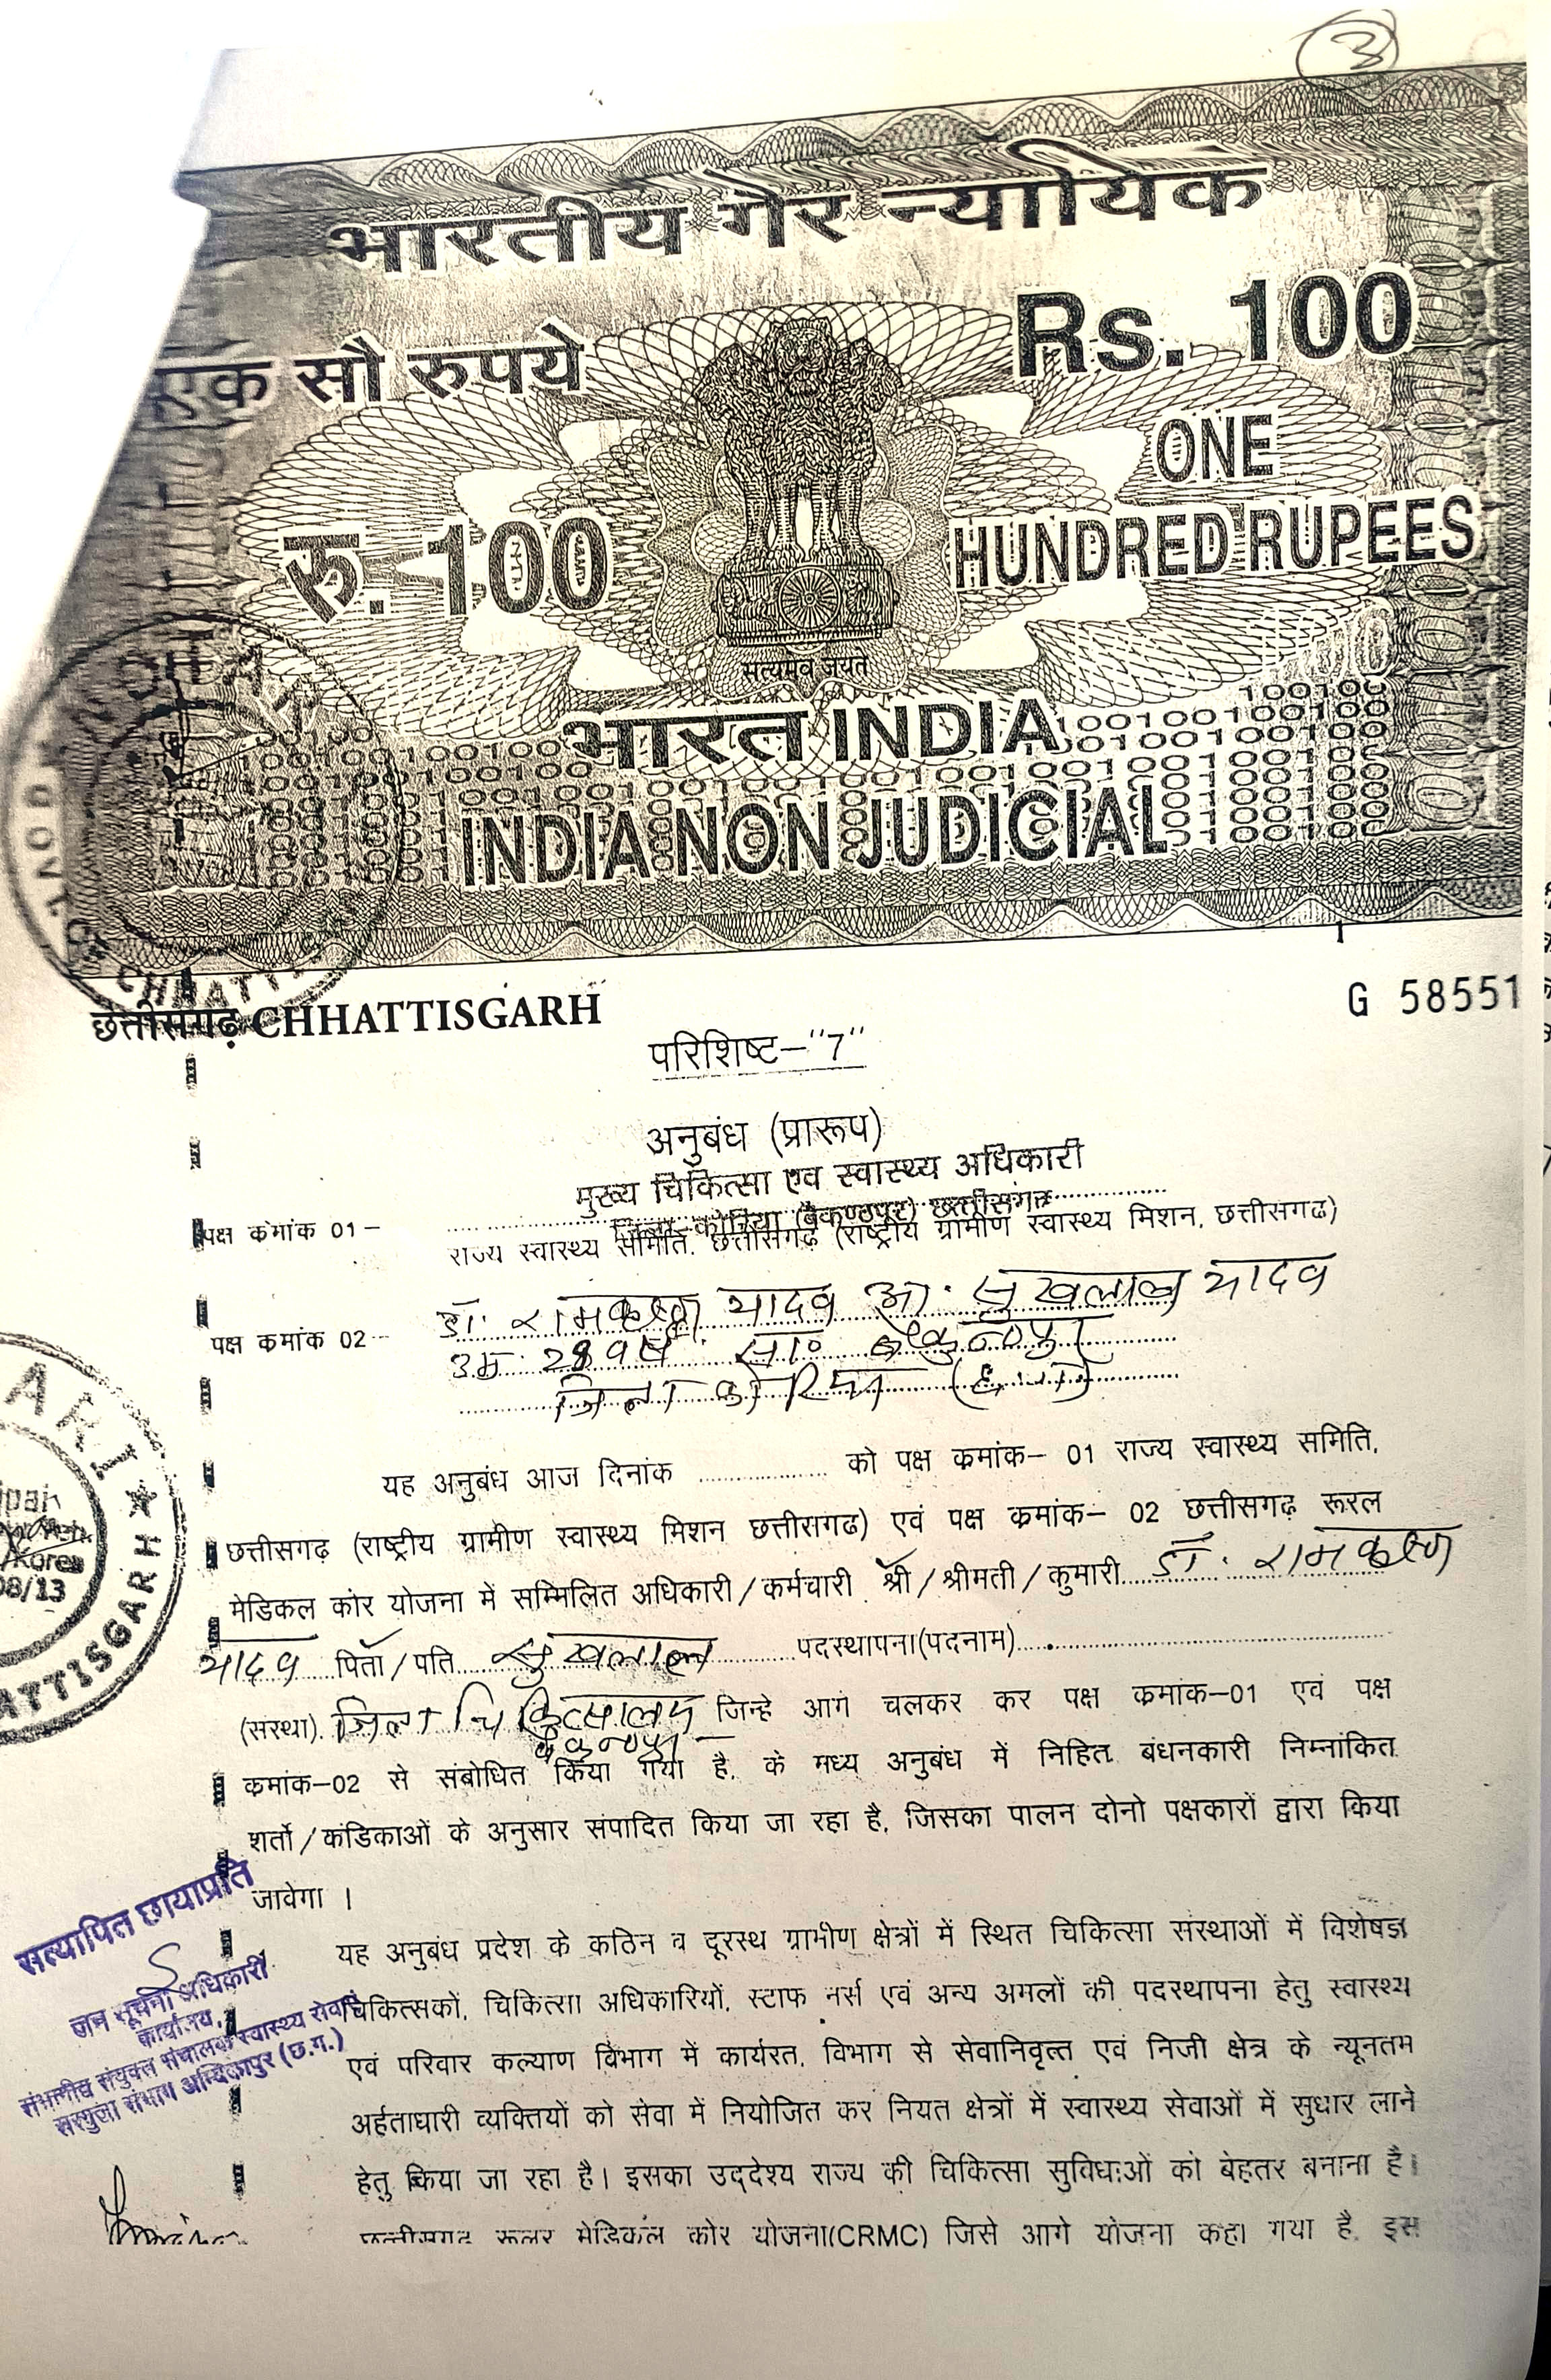 3
भारतीय गैर न्यायिक
एक सौ रुपये
Rs. 100
रु. 100
ONE
HUNDRED RUPEES
सत्यमेव जयते
भारत INDIA
INDIA NON JUDICIAL
छत्तीसगढ़ CHHATTISGARH
G 58551
परिशिष्ट–"7"
अनुबंध (प्रारूप)
मुख्य चिकित्सा एव स्वास्थ्य अधिकारी
जिला-कोरिया (बैकुण्ठपुर) छत्तीसगढ़
पक्ष कमांक 01 –
राज्य स्वास्थ्य समिति, छत्तीसगढ़ (राष्ट्रीय ग्रामीण स्वास्थ्य मिशन, छत्तीसगढ)
डॉ. रामकृष्ण यादव आ. सुखलाल यादव
पक्ष कमांक 02 –
उम्र 28 वर्ष सा० बैकुन्ठपुर
जिला कोरिया
यह अनुबंध आज दिनांक .................. को पक्ष कमांक– 01 राज्य स्वास्थ्य समिति,
छत्तीसगढ़ (राष्ट्रीय ग्रामीण स्वास्थ्य मिशन छत्तीसगढ) एवं पक्ष कमांक– 02 छत्तीसगढ़ रूरल
मेडिकल कोर योजना में सम्मिलित अधिकारी/कर्मचारी श्री/श्रीमती/कुमारी डॉ. रामकृष्ण
यादव पिता/पति सुखलाल पदस्थापना(पदनाम)
(संस्था) जिला चिकित्सालय जिन्हे आगे चलकर कर पक्ष कमांक–01 एवं पक्ष
बैकुन्ठपुर
कमांक–02 से संबोधित किया गया है, के मध्य अनुबंध में निहित बंधनकारी निम्नांकित
शर्तो/कंडिकाओं के अनुसार संपादित किया जा रहा है, जिसका पालन दोनो पक्षकारों द्वारा किया
जावेगा ।
यह अनुबंध प्रदेश के कठिन व दूरस्थ ग्रामीण क्षेत्रों में स्थित चिकित्सा संस्थाओं में विशेषज्ञ
चिकित्सकों, चिकित्सा अधिकारियों, स्टाफ नर्स एवं अन्य अमलों की पदस्थापना हेतु स्वास्थ्य
एवं परिवार कल्याण विभाग में कार्यरत, विभाग से सेवानिवृत्त एवं निजी क्षेत्र के न्यूनतम
अर्हताधारी व्यक्तियों को सेवा में नियोजित कर नियत क्षेत्रों में स्वास्थ्य सेवाओं में सुधार लाने
हेतु किया जा रहा है। इसका उद्देश्य राज्य की चिकित्सा सुविधाओं को बेहतर बनाना है।
छत्तीसगढ़ रूलर मेडिकल कोर योजना(CRMC) जिसे आगे योजना कहा गया है, इस
सत्यापित छायाप्रति
जन सूचना अधिकारी
कार्यालय,
संभागीय संयुक्त संचालक स्वास्थ्य सेवायें
सरगुजा संभाग अम्बिकापुर (छ.ग.)
CHHATTISGARH
08/13